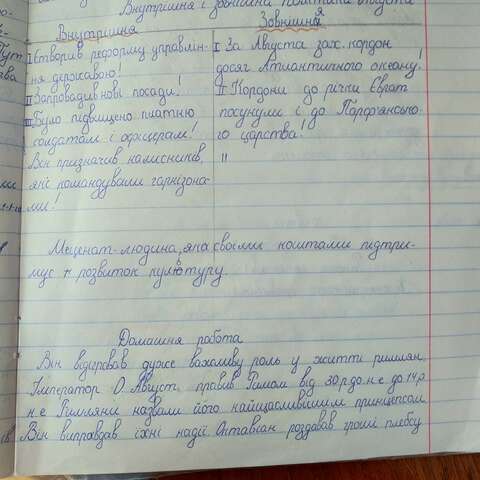 Внутрішня і зовнішня політика Августа
Внутрішня Зовнішня
I Створив реформу управлін-
ня державою!
II Запровадив нові посади!
III Було підвищено платню
солдатам і офіцерам!
Він призначив намісників,
які командували гарнізона-
ми!
I За Августа зах. кордон
досяг Атлантичного океану!
II Кордони до річки Євфрат
посунули і до Парфянсько-
го царства!
II
Меценат-людина, яка своїми коштами підтри-
мує розвиток культуру.
Домашня робота
Він відігравав дуже важливу роль у житті римлян.
Імператор О. Август правив Римом від 30 р до н.е до 14 р
н.е Римляни назвали його найщасливішим принцепсом
Він виправдав їхні надії Октавіан роздавав гроші плебсу